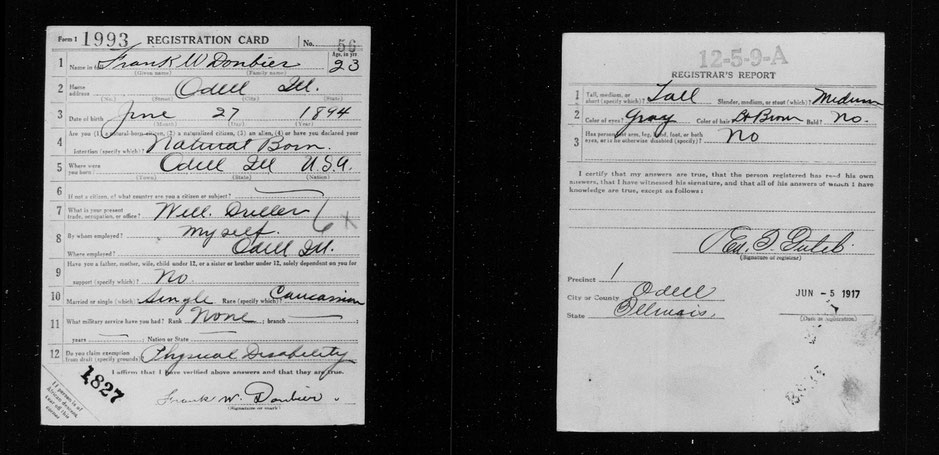 Form 1 1993 REGISTRATION CARD No. 56
1 Name in full Frank W Donbier Age, in yrs 23
(Given name) (Family name)
2 Home address Odell Ill.
(No.) (Street) (City) (State)
3 Date of birth June 27 1894
(Month) (Day) (Year)
4 Are you (1) a natural-born citizen, (2) a naturalized citizen, (3) an alien, (4) or have you declared your
intention (specify which)? Natural Born.
5 Where were you born? Odell Ill U.S.A.
(Town) (State) (Nation)
6 If not a citizen, of what country are you a citizen or subject?
7 What is your present trade, occupation, or office? Well. Driller
8 By whom employed? Myself.
Where employed? Odell Ill.
9 Have you a father, mother, wife, child under 12, or a sister or brother under 12, solely dependent on you for
support (specify which)? No.
10 Married or single (which)? Single Race (specify which)? Caucasion
11 What military service have you had? Rank None ; branch
years ; Nation or State
12 Do you claim exemption from draft (specify grounds)? Physical Disability
I affirm that I have verified above answers and that they are true.
1827
Frank W. Donbier.
(Signature or mark)
If person is of African descent, tear off this corner
12-5-9-A
REGISTRAR'S REPORT
1 Tall, medium, or short (specify which)? Tall Slender, medium, or stout (which)? Medium
2 Color of eyes? Gray Color of hair? Lt Brown Bald? No.
3 Has person lost arm, leg, hand, foot, or both
eyes, or is he otherwise disabled (specify)? No
I certify that my answers are true, that the person registered has read his own
answers, that I have witnessed his signature, and that all of his answers of which I have
knowledge are true, except as follows:
(Signature of registrar)
Precinct 1
City or County Odell
State Illinois,
JUN -5 1917
(Date of registration)